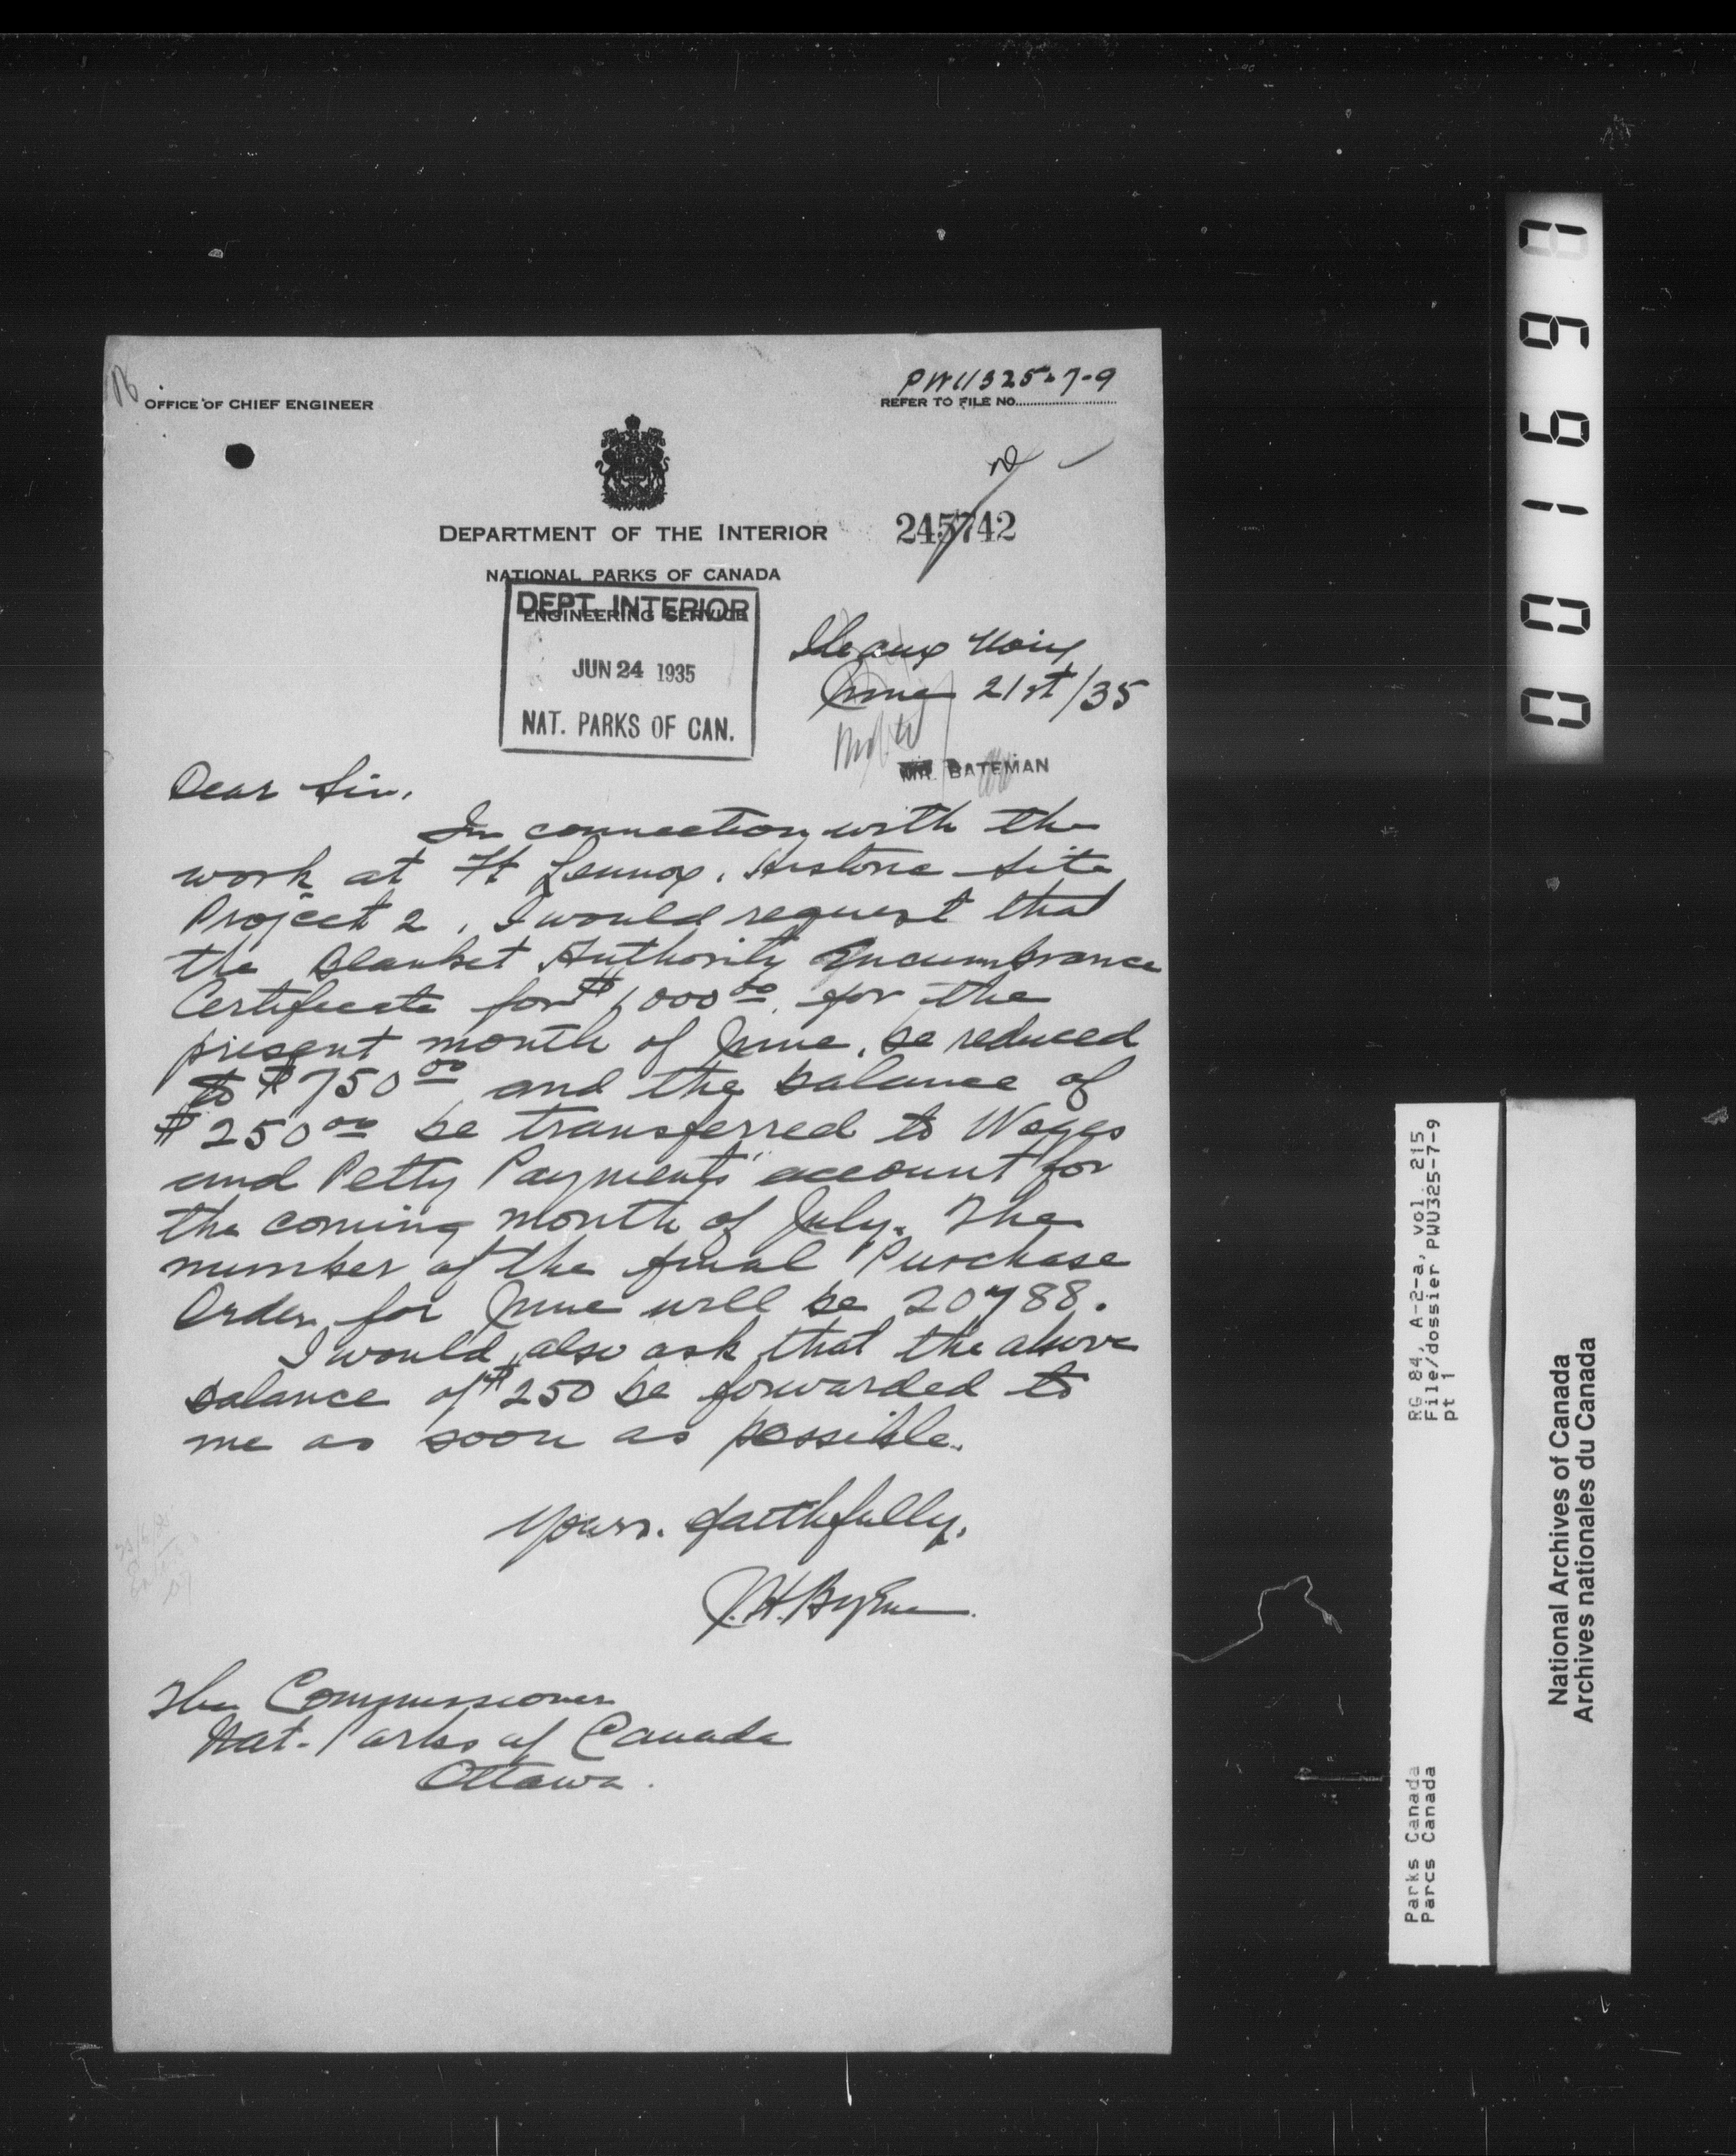 OFFICE OF CHIEF ENGINEER
PWU325-7-9
REFER TO FILE NO.
DEPARTMENT OF THE INTERIOR
245742
NATIONAL PARKS OF CANADA
ENGINEERING SERVICE
DEPT. INTERIOR
JUN 24 1935
NAT. PARKS OF CAN.
Ile aux Noix
June 21st/35
MR. BATEMAN
Dear Sir,
In connection with the
work at Ft Lennox, Historic Site
Project 2, I would request that
the Blanket Authority Encumbrance
Certificate for $1,000.00 for the
present month of June, be reduced
to $750.00 and the balance of
$250.00 be transferred to Wages
and Petty Payments" account for
the coming month of July. The
number of the final Purchase
Order for June will be 20788.
I would also ask that the above
balance of $250 be forwarded to
me as soon as possible.
Yours faithfully,
J.H. Byrne
The Commissioner
Nat. Parks of Canada
Ottawa.
001698
RG 84, A-2-a, vol. 215
File/dossier PWU325-7-9
pt 1
Parks Canada
Parcs Canada
National Archives of Canada
Archives nationales du Canada